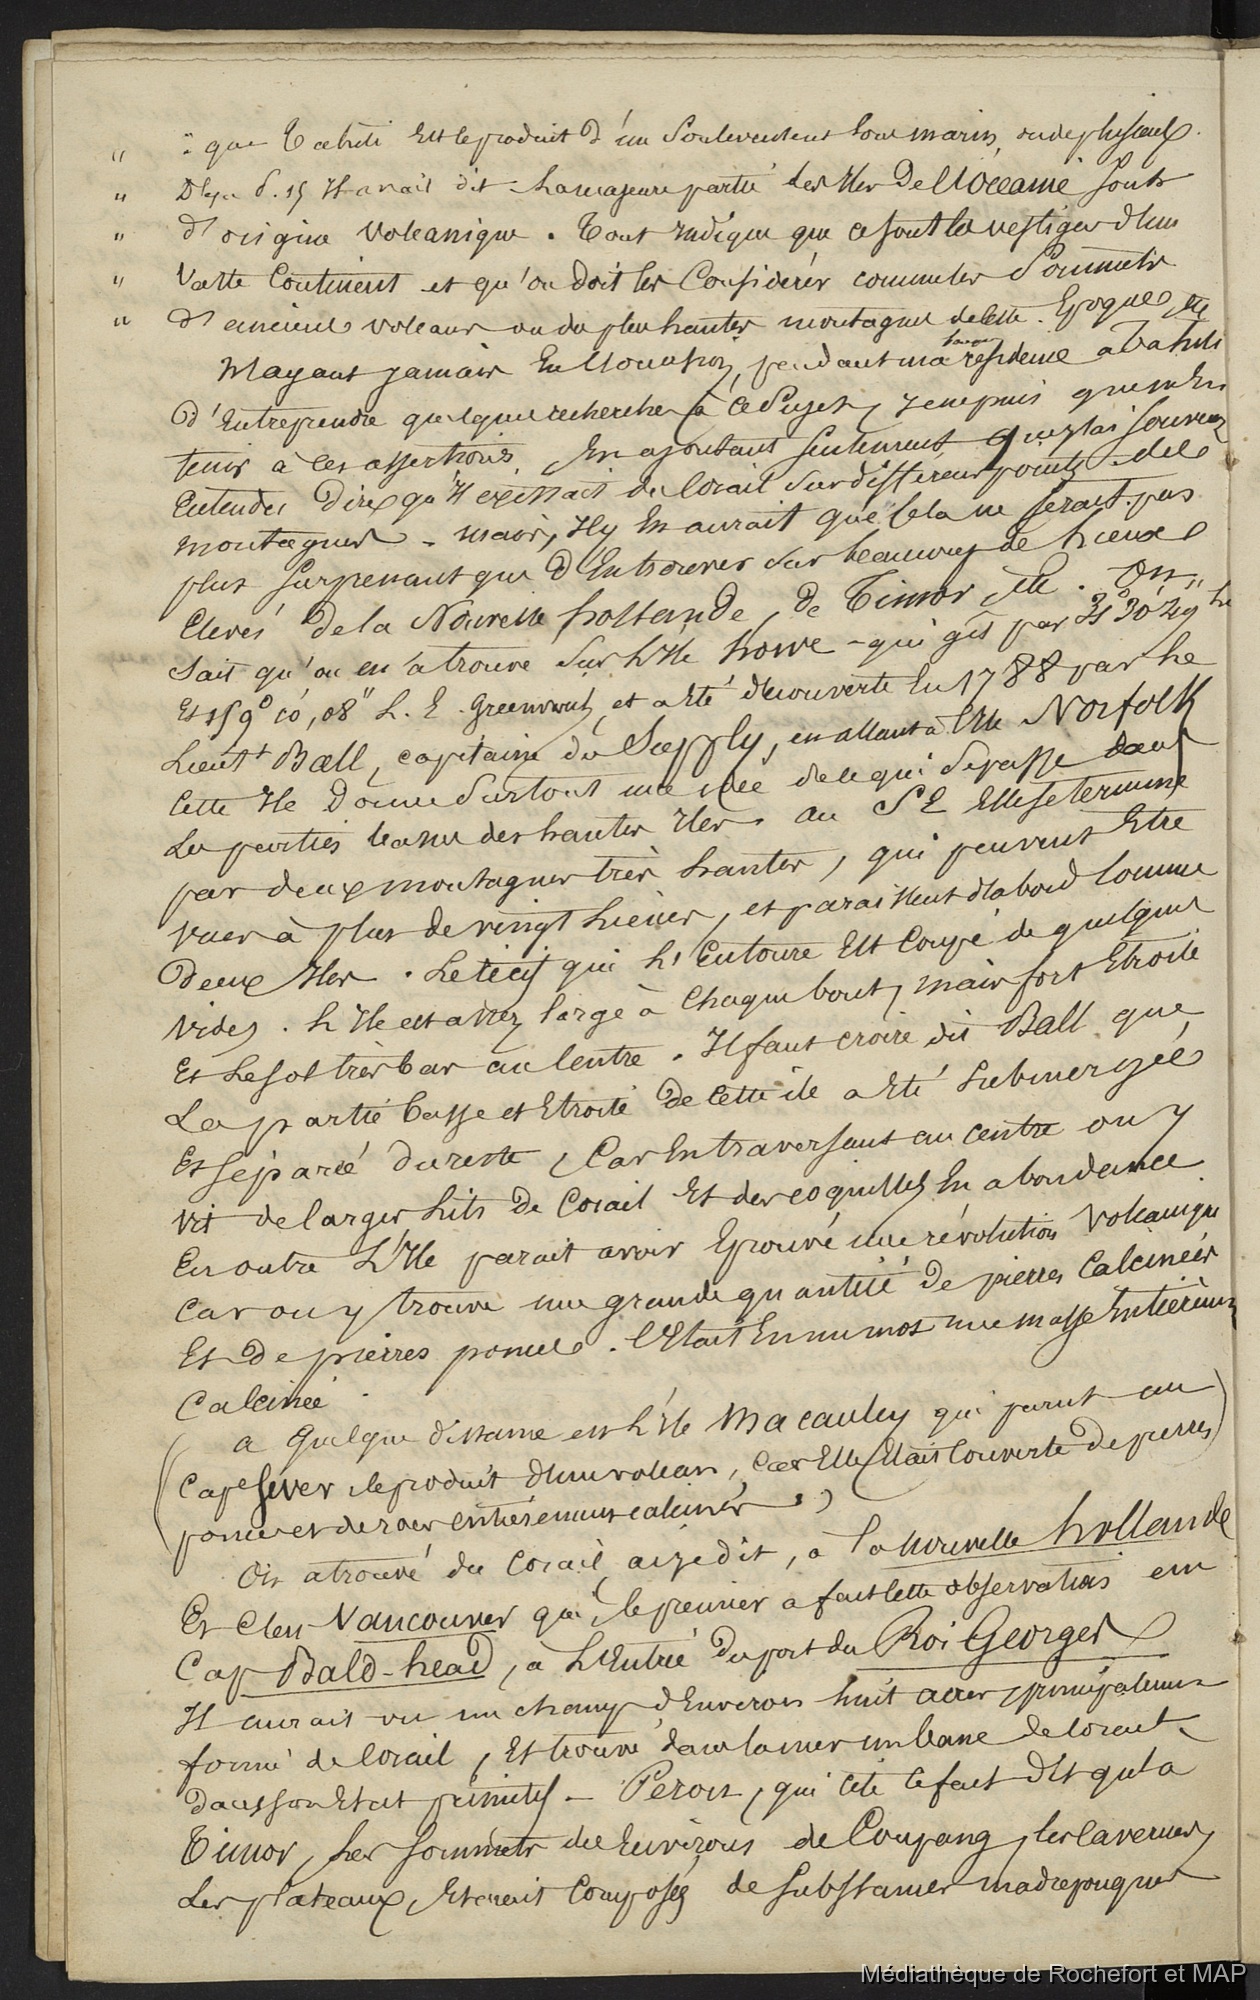 " que Tahiti Est le produit d'un Soulevement Sous marin, ou de plusieurs.
" Deja p. 15 Il avait dit - La majeure partie des Iles De l'Océanie Sont
" d'origine Volcanique. Tout Indique que ce sont les vestiges d'un
" Vaste Continent et qu'on doit les Considérer comme les Sommets
" d'anciens volcans ou des plus hautes montagnes de cette Epoque.
N'ayant jamais Eu l'occasion, pendant ma longue résidence a Tahiti
d'Entreprendre quelque recherche à ce Sujet, je ne puis que m'en
tenir à ces assertions, En ajoutant Seulement, que j'ai souvent
Entendu Dire qu'Il existait du Corail Sur différens points des
montagnes - mais, Il y En aurait que Cela ne serait pas
plus Surprenant que d'En trouver Sur beaucoup de Lieux
Elevés de la Nouvelle hollande, de Timor, etc. On
Sait qu'on en a trouvé Sur L'Ile howe - qui gît par 31° 30' 49"
Et 159° 10', 08" L. E. Greenwich, et a Eté découverte En 1788 par Le
Lieut Ball, capitaine du Supply, en allant à l'Ile Norfolk
Cette Ile Donne Surtout une idée de ce qui Se passe dans
Les parties basses des hautes Iles. Au S E Elle se termine
par deux montagnes très hautes, qui peuvent Etre
vues à plus de vingt Lieues, et paraissent d'abord Comme
Deux Iles. Le récif qui L'Entoure Est Coupé de quelques
vides. L'Ile est assez large à Chaque bout, mais fort Etroite
Et Le sol très bas au Centre. Il faut croire dit Ball que
La partie basse et Etroite de Cette île a Eté Submergée
Et séparée du reste, Car En traversant au centre on y
vit de larges Lits De Corail Et des coquilles En abondance
En outre L'Ile parait avoir Eprouvé une révolution Volcanique
Car on y trouve une grande quantité de pierres Calcinées
Et De pierres ponces. C'Etait En un mot une masse Entièrement
Calcinée.
(a quelque distance est L'Ile Macauley qui parut au
Cape Sever le produit d'un volcan, Car Elle Etait Couverte De pierres
ponces et de rocs entièrement calcinés.)
On a trouvé du Corail, ai je dit, à la Nouvelle hollande
Et C'est Vancouver qui, le premier a fait Cette observation au
Cap Bald-head, a L'Entrée Du port du Roi Georges
Il aurait vu un champ d'Environ huit acres, principalement
formé de Corail, Et trouvé dans la mer un banc de Corail
dans son Etat primitif - Peron, qui Cite Ce fait Dit qu'a
Timor, Les Sommets des Environs de Coupang, les Cavernes,
Les plateaux, Etaient Composés de Substances madreporiques
Médiathèque de Rochefort et MAP